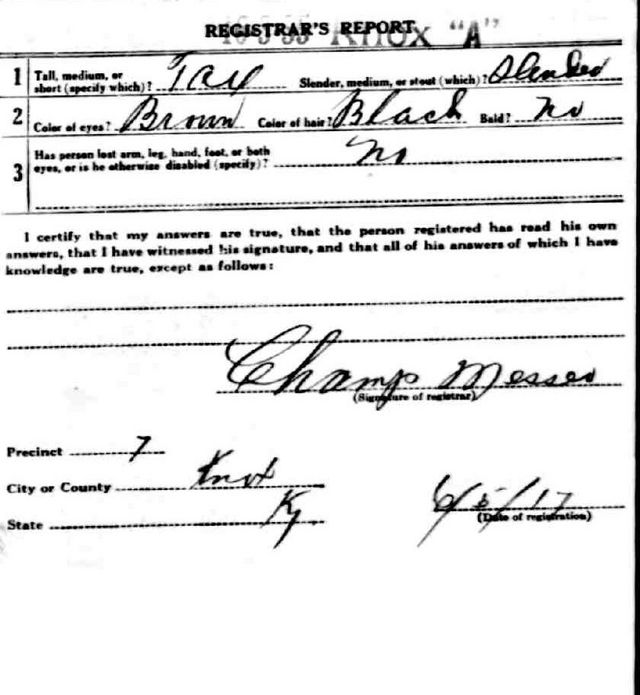 REGISTRAR'S REPORT
KNOX "A"
1 Tall, medium, or
short (specify which)? Tall Slender, medium, or stout (which)? Slender
2 Color of eyes? Brown Color of hair? Black Bald? No
3 Has person lost arm, leg, hand, foot, or both
eyes, or is he otherwise disabled (specify)? No
I certify that my answers are true, that the person registered has read his own
answers, that I have witnessed his signature, and that all of his answers of which I have
knowledge are true, except as follows:
Champ Messer
(Signature of registrar)
Precinct 7
City or County Knox
State Ky
6/5/17
(Date of registration)